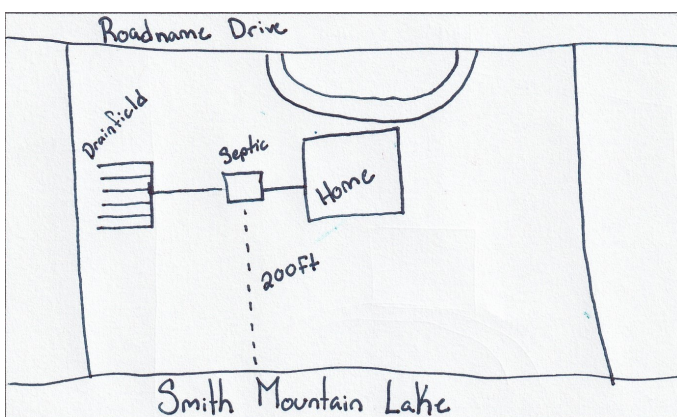 Roadname Drive
Drainfield
Septic
Home
200ft
Smith Mountain Lake